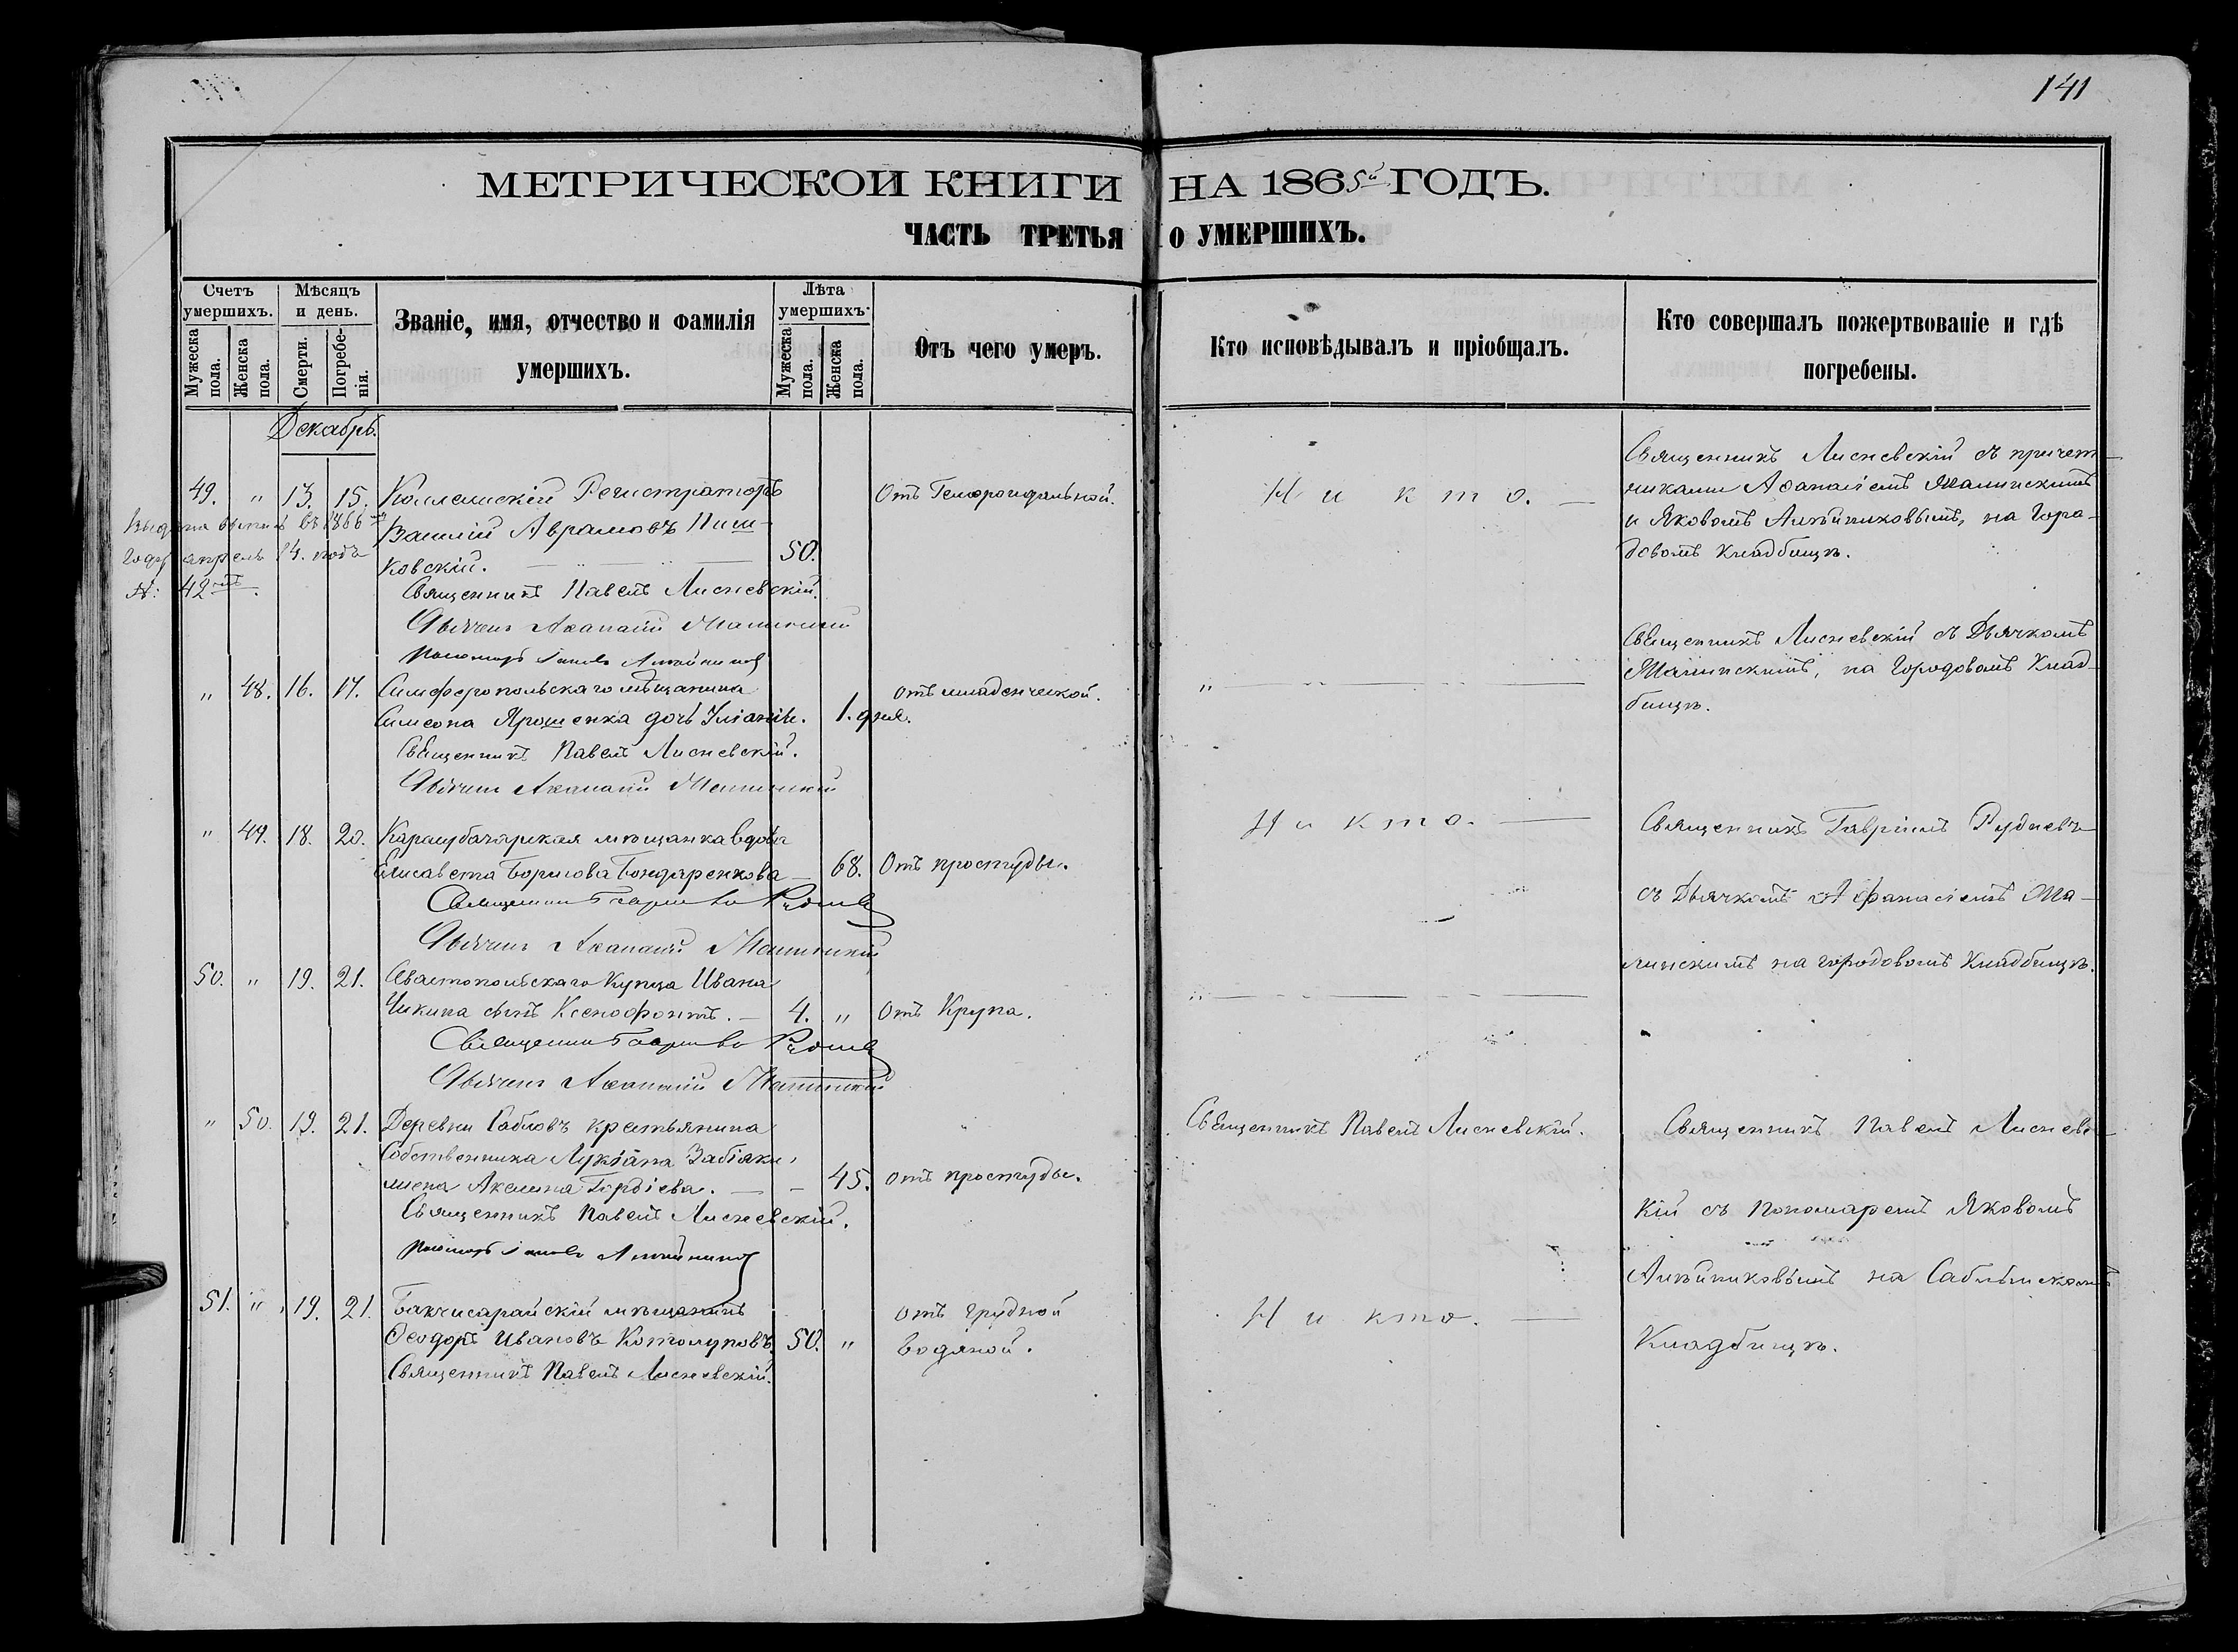 141
МЕТРИЧЕСКОЙ КНИГИ НА 1865й ГОДЪ.
ЧАСТЬ ТРЕТЬЯ О УМЕРШИХЪ.
Счетъ умершихъ.
Мужеска пола.
Женска пола.
Мѣсяцъ и день.
Смерти.
Погребенія.
Званіе, имя, отчество и фамилія умершихъ.
Лѣта умершихъ.
Мужеска пола.
Женска пола.
Отъ чего умеръ.
Кто исповѣдывалъ и пріобщалъ.
Кто совершалъ пожертвованіе и гдѣ погребены.
Декабрь.
49. " 13. 15. Коллежскій Регистраторъ
Василій Аврамовъ Пиш-
ковскій. 50.
Отъ Гемороидальной.
Никто.
Священникъ Лисневскій съ причет-
никами Аѳанасіемъ Малинскимъ
и Яковомъ Литвиновымъ, на Горо-
довомъ кладбищѣ.
Выдана въ 1866
году апрель 14. подъ
№: 42
Священникъ Павелъ Лисневскій.
Дьячекъ Аѳанасій Малинскій
Пономарь Іаковъ
" 48. 16. 17. Симферопольскаго мѣщанина
Симеона Ярошенка дочь Іуліанія. 1. дня.
отъ младенческой.
"
Священникъ Лисневскій съ Дьячкомъ
Малинскимъ, на Городовомъ Клад-
бищѣ.
Священникъ Павелъ Лисневскій.
Дьячекъ Аѳанасій Малинскій
" 49. 18. 20. Карасубазарская мѣщанка вдова
Елисавета Борисова Бондаренкова 68. Отъ простуды.
Никто.
Священникъ Гавріилъ Рудневъ
съ Дьячкомъ Афанасіемъ Ма-
линскимъ на городовомъ Кладбищѣ.
Священникъ Гавріилъ Рудневъ
Дьячекъ Аѳанасій Малинскій
50. " 19. 21. Севастопольскаго Купца Ивана
Чикина сынъ Ксенофонтъ. 4. " Отъ Крупа.
"
Священникъ Гавріилъ Рудневъ
Дьячекъ Аѳанасій Малинскій
" 50. 19. 21. Деревни Сабловъ крестьянина
Собственника Лукіана Забіяки,
жена Акелина Гордіева. 45. отъ простуды.
Священникъ Павелъ Лисневскій.
Священникъ Павелъ Лисневс-
кій съ Пономаремъ Яковомъ
на Саблынскомъ
Кладбищѣ.
Священникъ Павелъ Лисневскій.
Пономарь Іаковъ
51. " 19. 21. Бакчисарайскій мѣщанинъ
Ѳеодоръ Ивановъ Котолуповъ. 50. "
отъ грудной
водяной.
Никто.
Священникъ Павелъ Лисневскій.